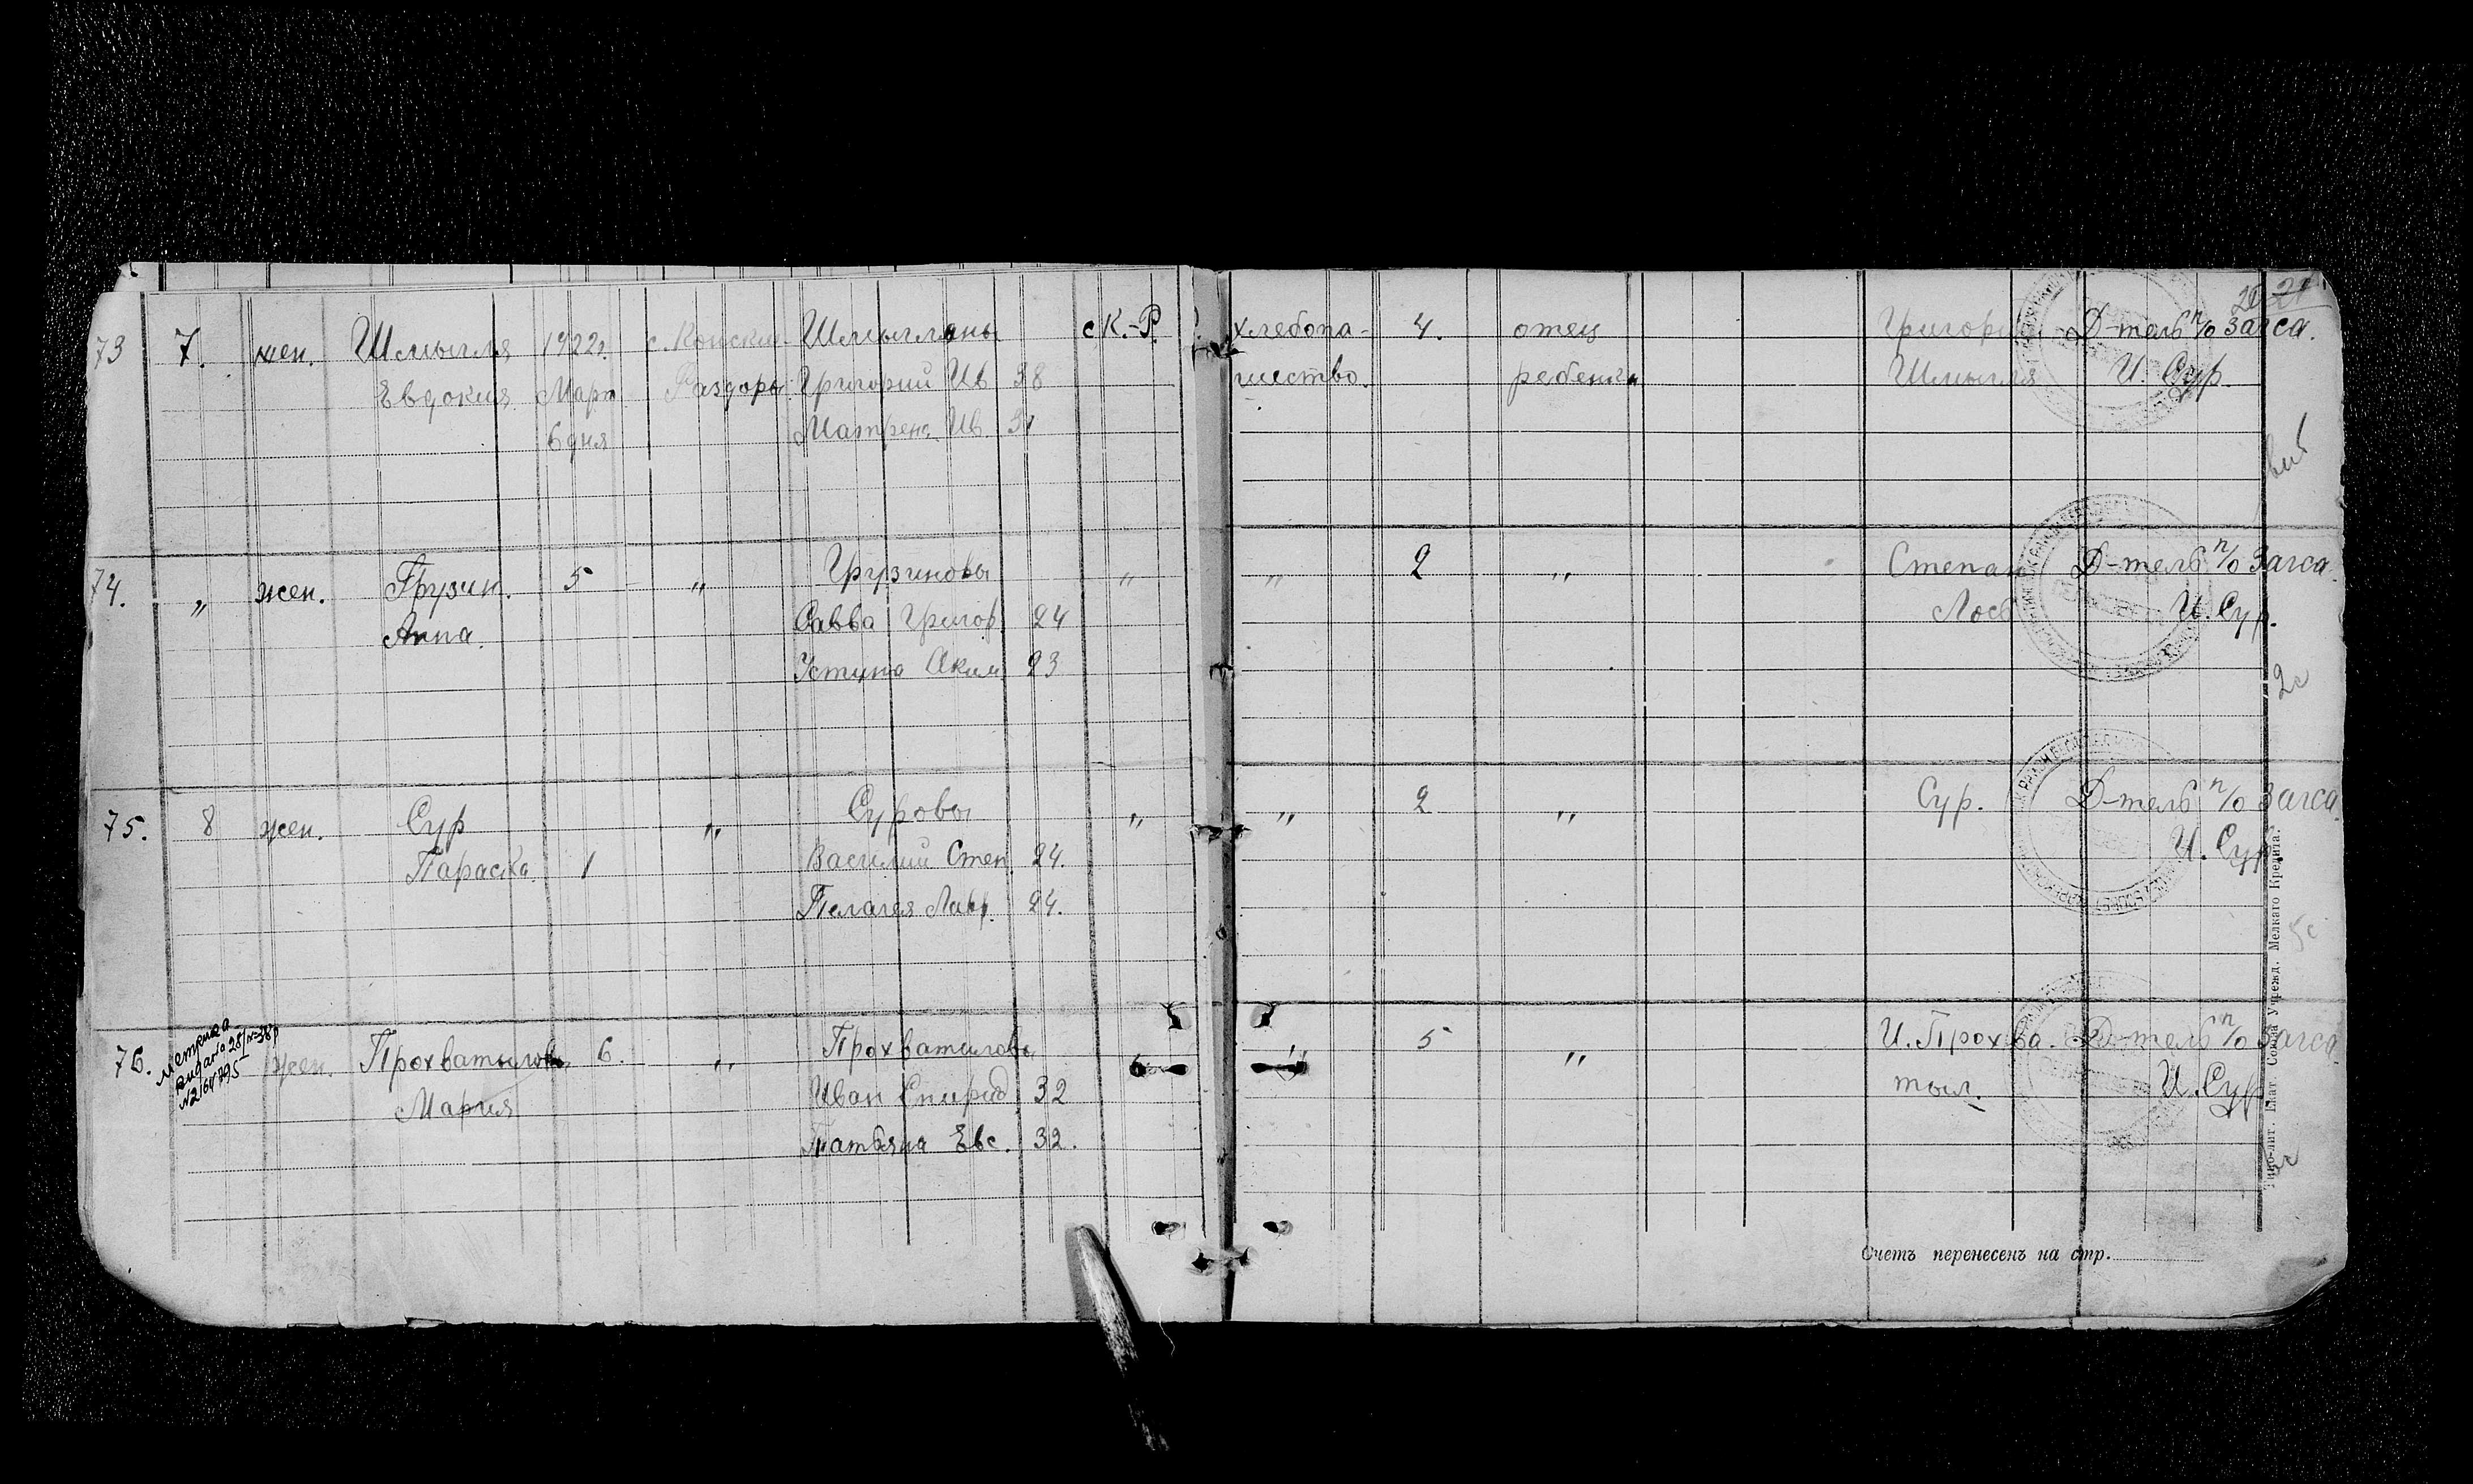 20 21
73 7. жен. Шмыгля 1922г. с. Конския Шмыгляны с К.-Р. хлебопа- 4. отец Григорий Д-тель п/о Загса.
Евдокия Март Раздоры Григорий Ив 38 шество. ребенка Шмыгля И. Сур.
6 дня Матрена Ив. 31
74. „ жен. Грузин. 5 „ Грузиновы „ „ 2 „ Степан Д-тель п/о Загса.
Анна. Савва Григор. 24 Лось И. Сур.
Устина Аким 23
2с
75. 8 жен. Сур „ Суровы „ „ 2 „ Сур. Д-тель п/о Загса
Параска. 1 Василий Степ. 24. И. Сур.
Пелагея Лавр. 24.
5с
76. жен. Прохватилова 6. „ Прохватиловы „ „ 5 „ И. Прохва- Д-тель п/о Загса
Мария Иван Спирид. 32 тыл. И. Сур
Татьяна Евс. 32.
метрика
видана 28/ІХ-38р
№2164795
Счетъ перенесенъ на стр.
Типо-лит. Глат. Союза Учрежд. Мелкаго Кредита.